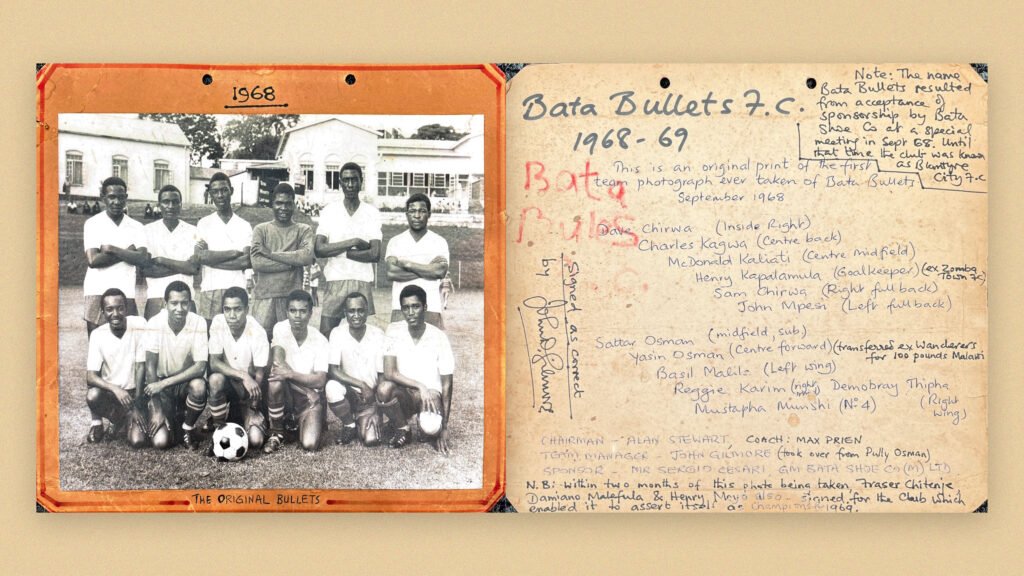 1968
THE ORIGINAL BULLETS
Bata Bullets F.C.
1968-69
Note: The name
Bata Bullets resulted
from acceptance of
sponsorship by Bata
Shoe Co at a special
meeting in Sept 68. Until
that time the club was known
as Blantyre
City F.C
This is an original print of the first
team photograph ever taken of Bata Bullets
September 1968
Bata
Bulls
Dave Chirwa (Inside Right)
Charles Kagwa (Centre back)
McDonald Kaliati (Centre midfield)
Henry Kapalamula (Goalkeeper) (ex Zomba
Town F.C)
Sam Chirwa (Right fullback)
John Mpesi (Left fullback)
Sattar Osman (midfield, sub)
Yasin Osman (Centre forward) (transferred ex Wanderers
for 100 pounds Malawi
Basil Malila (Left wing)
Reggie Karim (right Demobray Thipha
(Right
wing)
Mustapha Munshi (No 4)
Signed as correct
by John Gilmore
CHAIRMAN - ALAN STEWART, COACH: MAX PRIEN
TEAM MANAGER - JOHN GILMORE (took over from Pully Osman)
SPONSOR - MR SERGIO CESARI GM BATA SHOE CO (M) LTD
N.B: Within two months of this photo being taken, Fraser Chitenje
Damiano Malefula & Henry Moyo also signed for the Club which
enabled it to assert itself as Champions 1969.